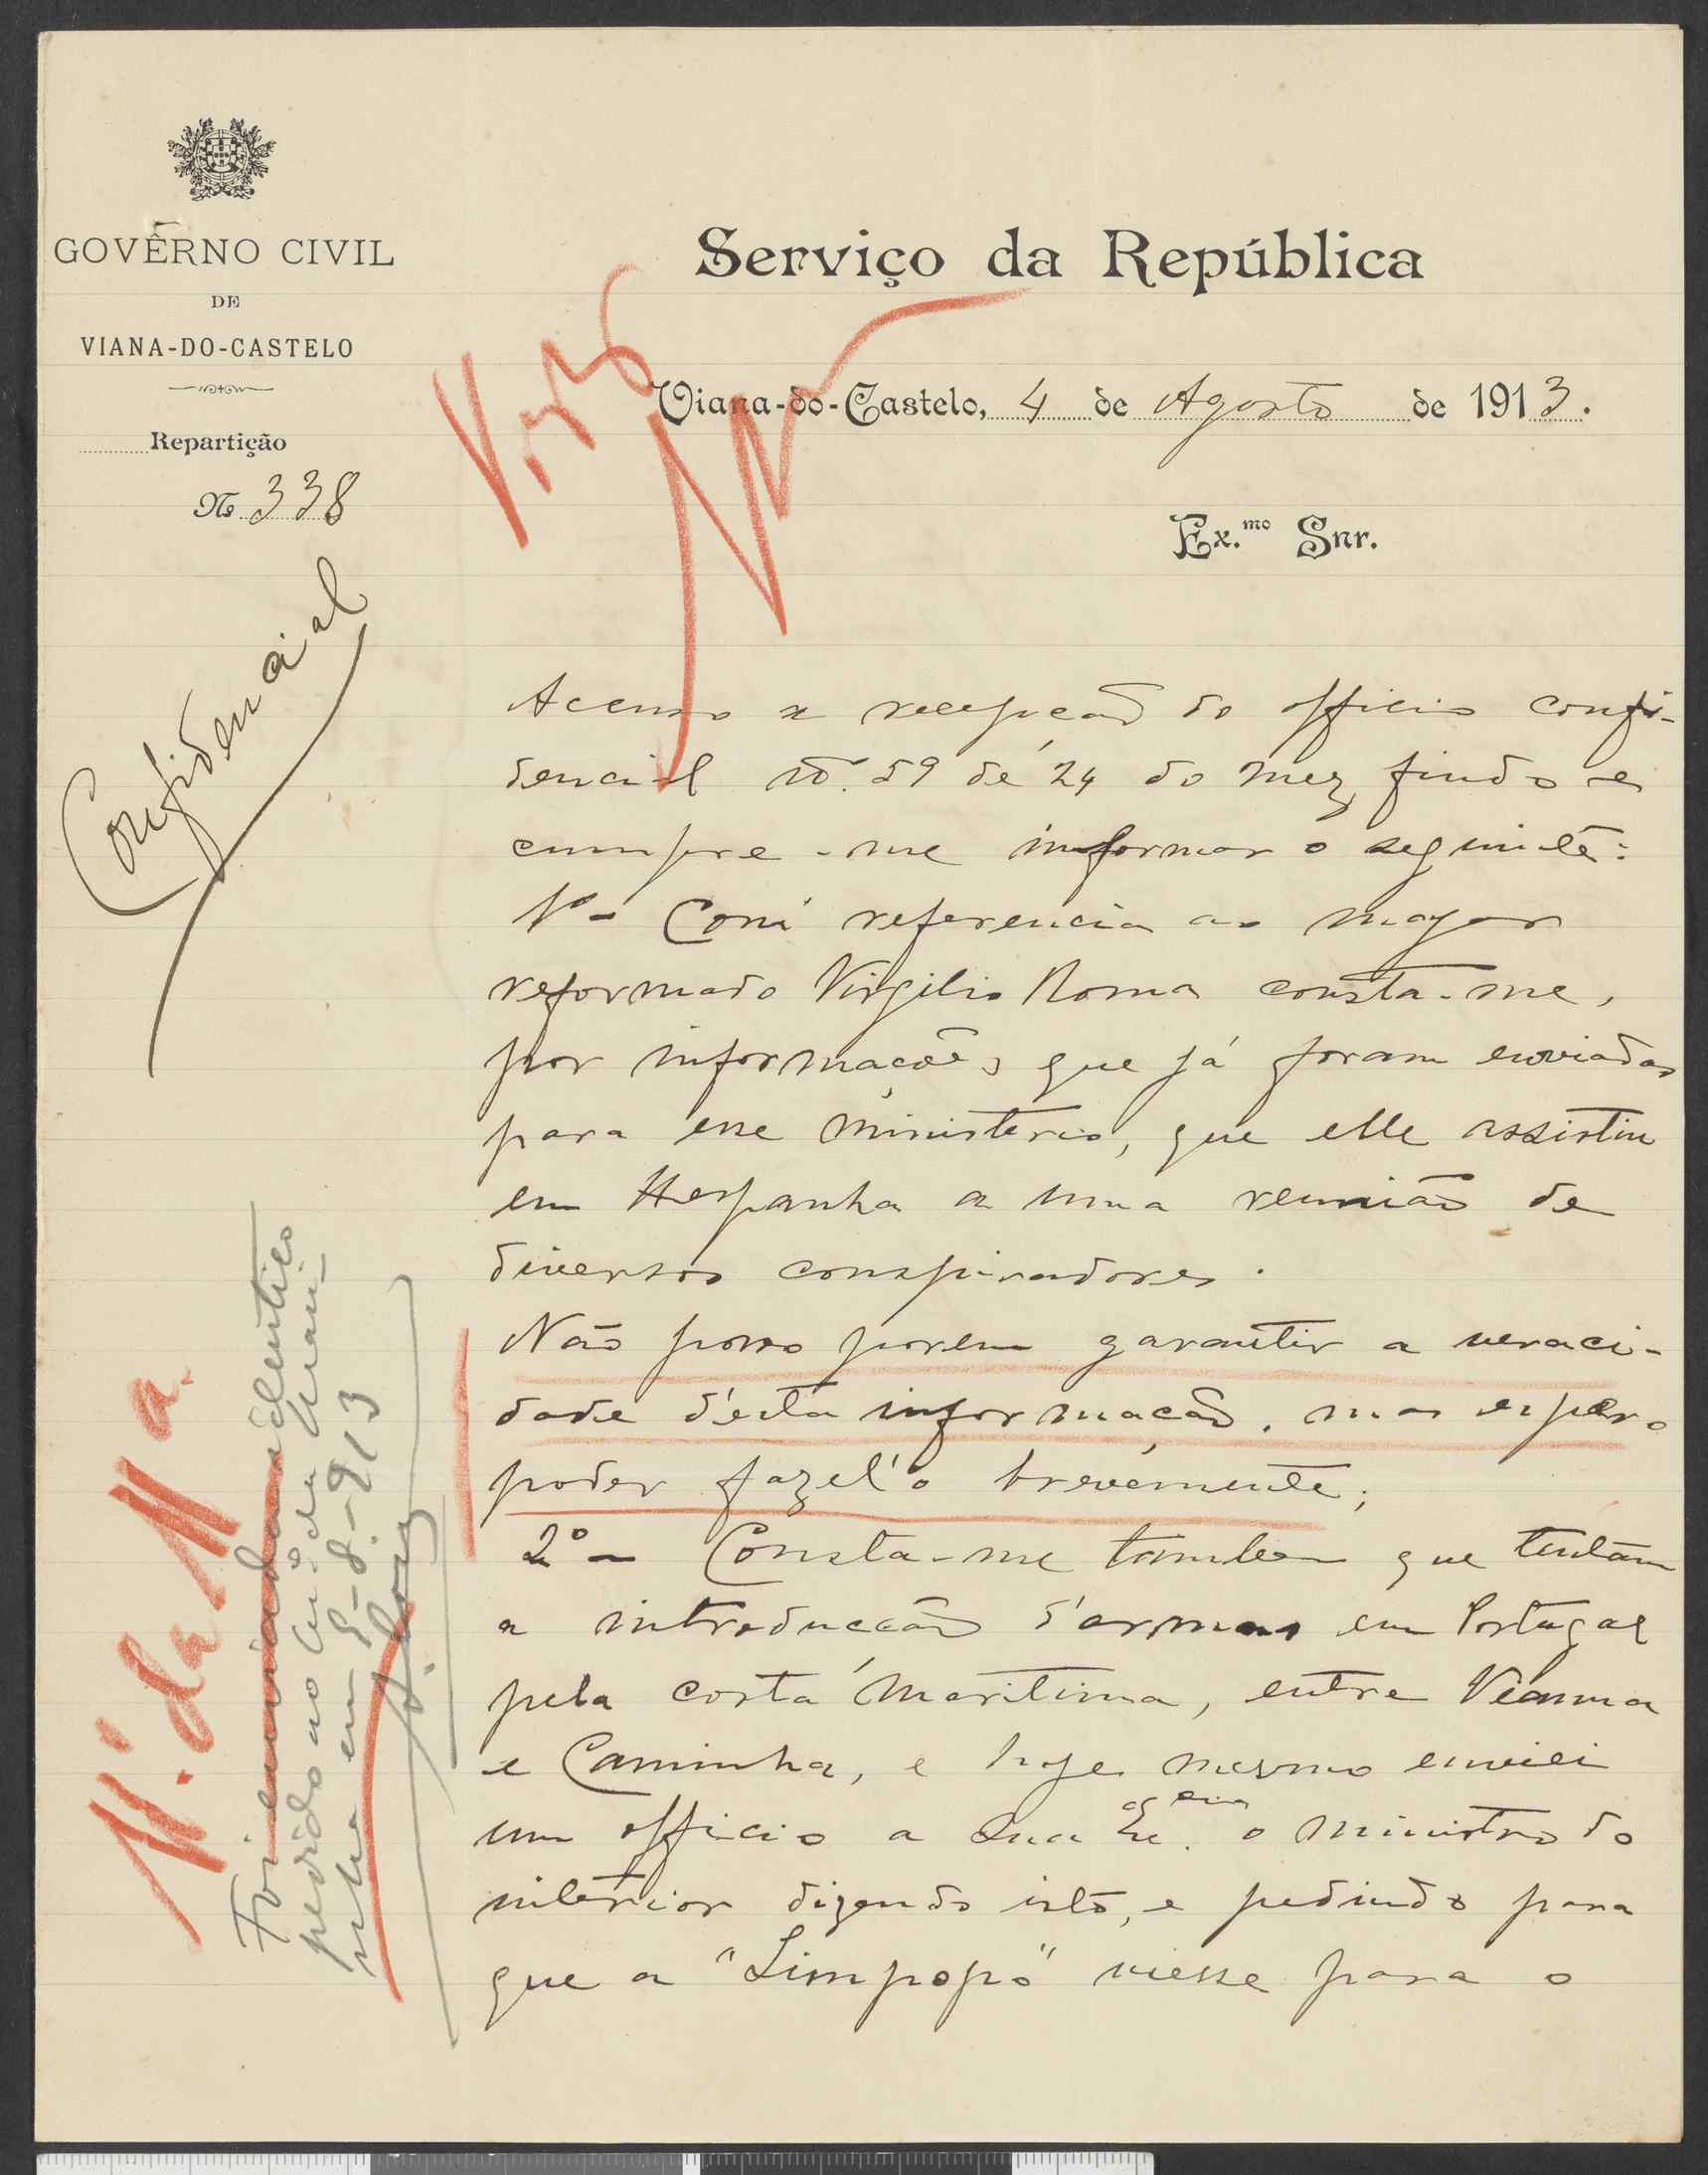 GOVÊRNO CIVIL
DE
VIANA-DO-CASTELO
Repartição
No 338
Confidencial
Serviço da República
Visto
Viana-do-Castelo, 4 de Agosto de 1913.
Ex.mo Snr.
Accuso a recepção do officio confi-
dencial no. 59 de 24 do mez findo e
cumpre-me informar o seguinte:
1º - Com referencia ao major
reformado Virgilio Roma consta-me,
por informações que já foram enviadas
para esse ministerio, que elle assistiu
em Hespanha a uma reunião de
diversos conspiradores.
Não posso porem garantir a veraci-
dade d'esta informação, mas espero
poder fazel'o brevemente;
2º - Consta-me tambem que tentam
a introducção d'armas em Portugal
pela costa maritima, entre Vianna
e Caminha, e hoje mesmo enviei
um officio a Sua Exª o ministro do
interior dizendo isto, e pedindo para
que a "Limpopo" viesse para o
M. da Ma.
Foi enviado identico
pedido ao da
em 5-8-913